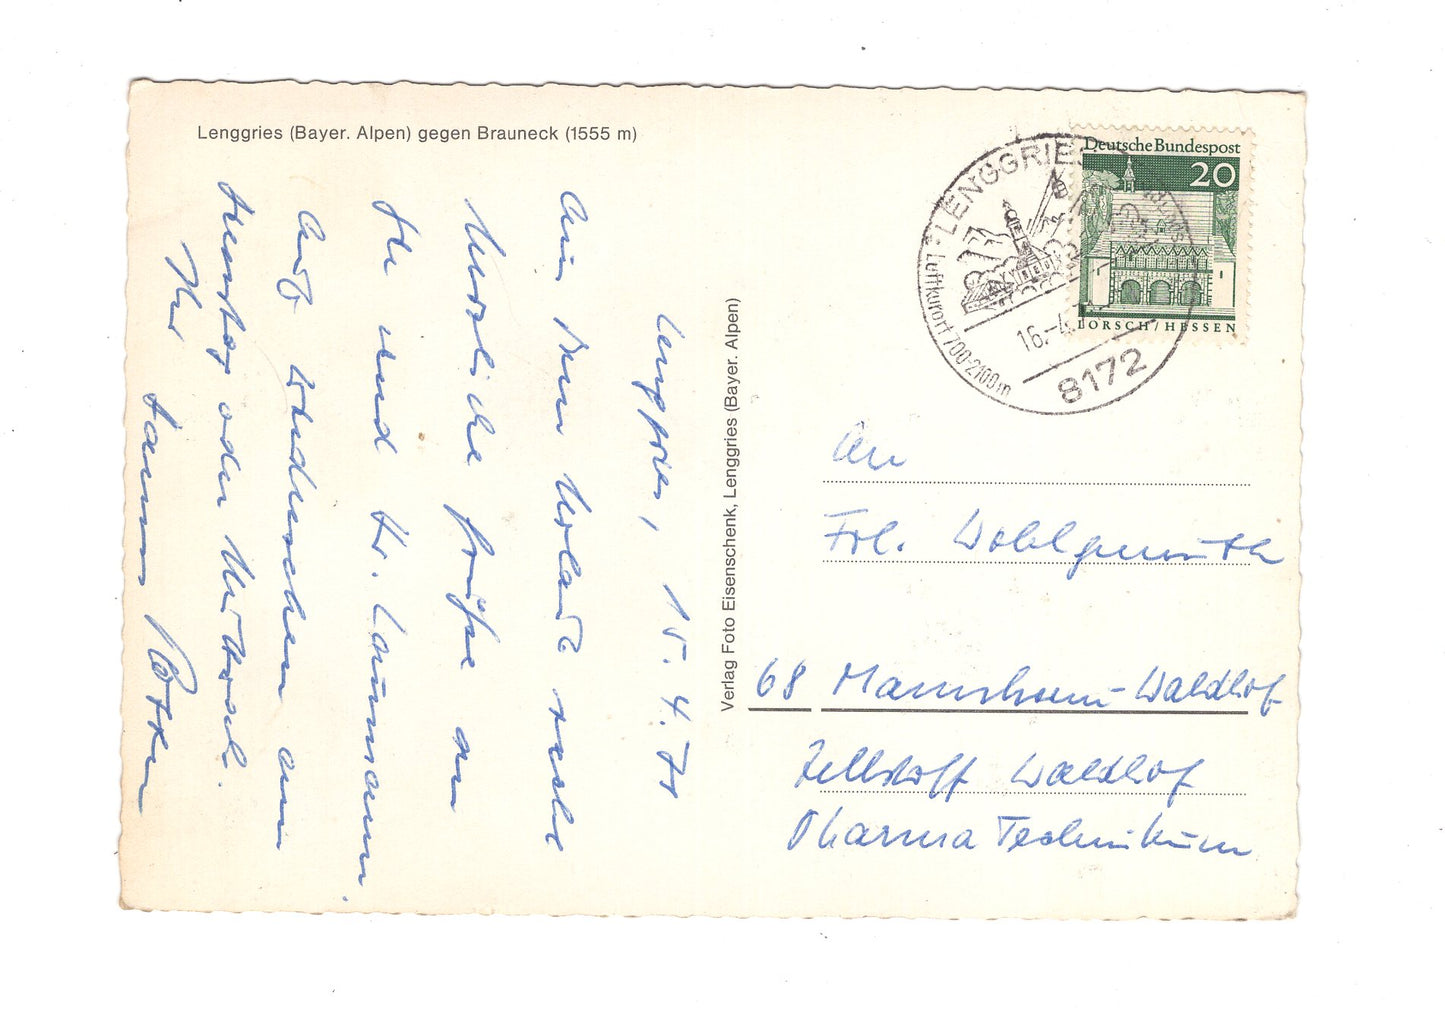 Lenggries (Bayer. Alpen) gegen Brauneck (1555 m)
Lenggries, 15. 4. 71
Aus dem Urlaub recht
herzliche Grüße an
Sie und Hr. Laumann.
Auf Wiedersehen am
Dienstag oder Mittwoch.
Ihr
Verlag Foto Eisenschenk, Lenggries (Bayer. Alpen)
LENGGRIES
Luftkurort 700-2100m
16.-4.7
8172
Deutsche Bundespost
20
LORSCH/HESSEN
An
Frl. Wohlgemuth
68 Mannheim-Waldhof
Zellstoff Waldhof
Pharma Technikum